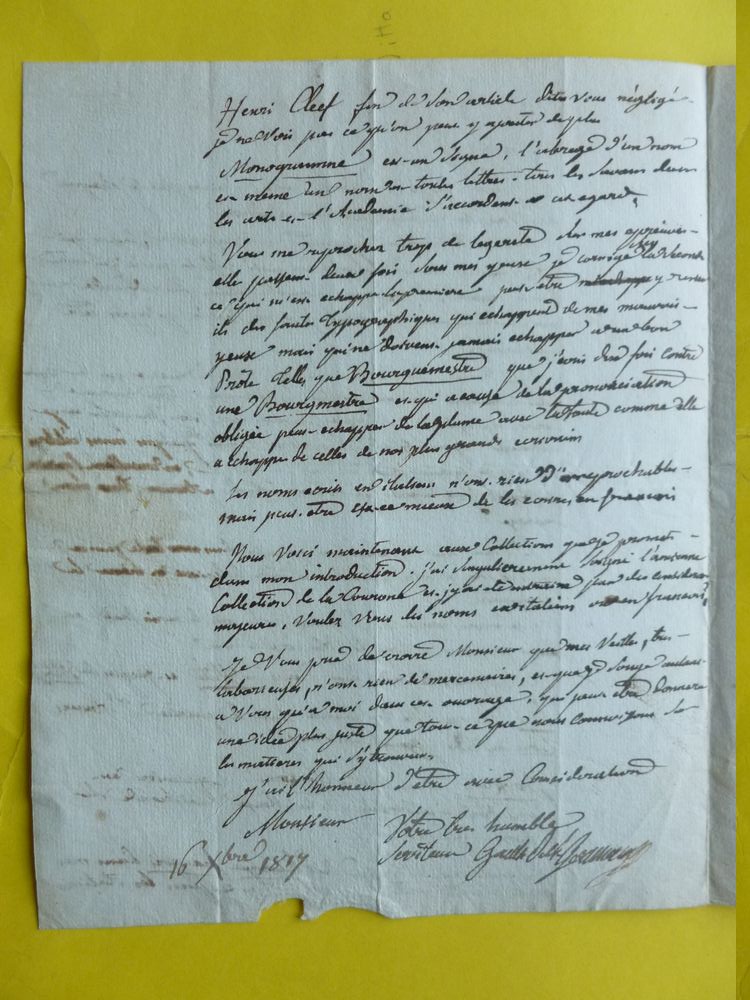 Henri Cleef fin de son article dites vous négligé
je ne vois pas ce qu'on peut y ajouter de plus
Monogramme est un signe, l'abrégé d'un nom
et meme un nom en toutes lettres. tous les savans dans
les arts et l'Academie s'accordent a cet egard.
Vous me reprochez trop de legereté dans mes epreuves
elle passent deux fois sous mes yeux je corrige la seconde
ce qui m'est echappé la premiere peut etre y reste
ils des fautes typographiques qui echappent de mes mauvais
yeux mais qui ne doivent jamais echapper a un bon
Prôte telles que Bourguemestre que j'avois dix fois contre
une Bourgmestre et qui a cause de la prononciation
obligée peut echapper de la plume avec la faute comme elle
a echappé de celles de nos plus grands ecrivains
Les noms ecrits en italiens n'ont rien d'irreprochables
mais peut etre est-ce mieux de les ecrire en francois
Nous voici maintenant aux Collections que je promet
dans mon introduction. j'ai singulierement soigné l'ancienne
Collection de la Couronne et j'y ai été par des considerations
majeures, voulez vous les noms en italiens ou en francois,
Je vous prie de croire Monsieur que mes veilles, très
laborieuses, n'ont rien de mercenaires, et que je songe autant
a vous qu'a moi dans cet ouvrage, qui peut etre donnera
une idée plus juste que tout ce que nous connoissons sur
les matieres qui s'y trouvent.
J'ai l'honneur d'etre avec Consideration
Monsieur Votre très humble
Serviteur Gault de St Germain
16 Xbre 1817